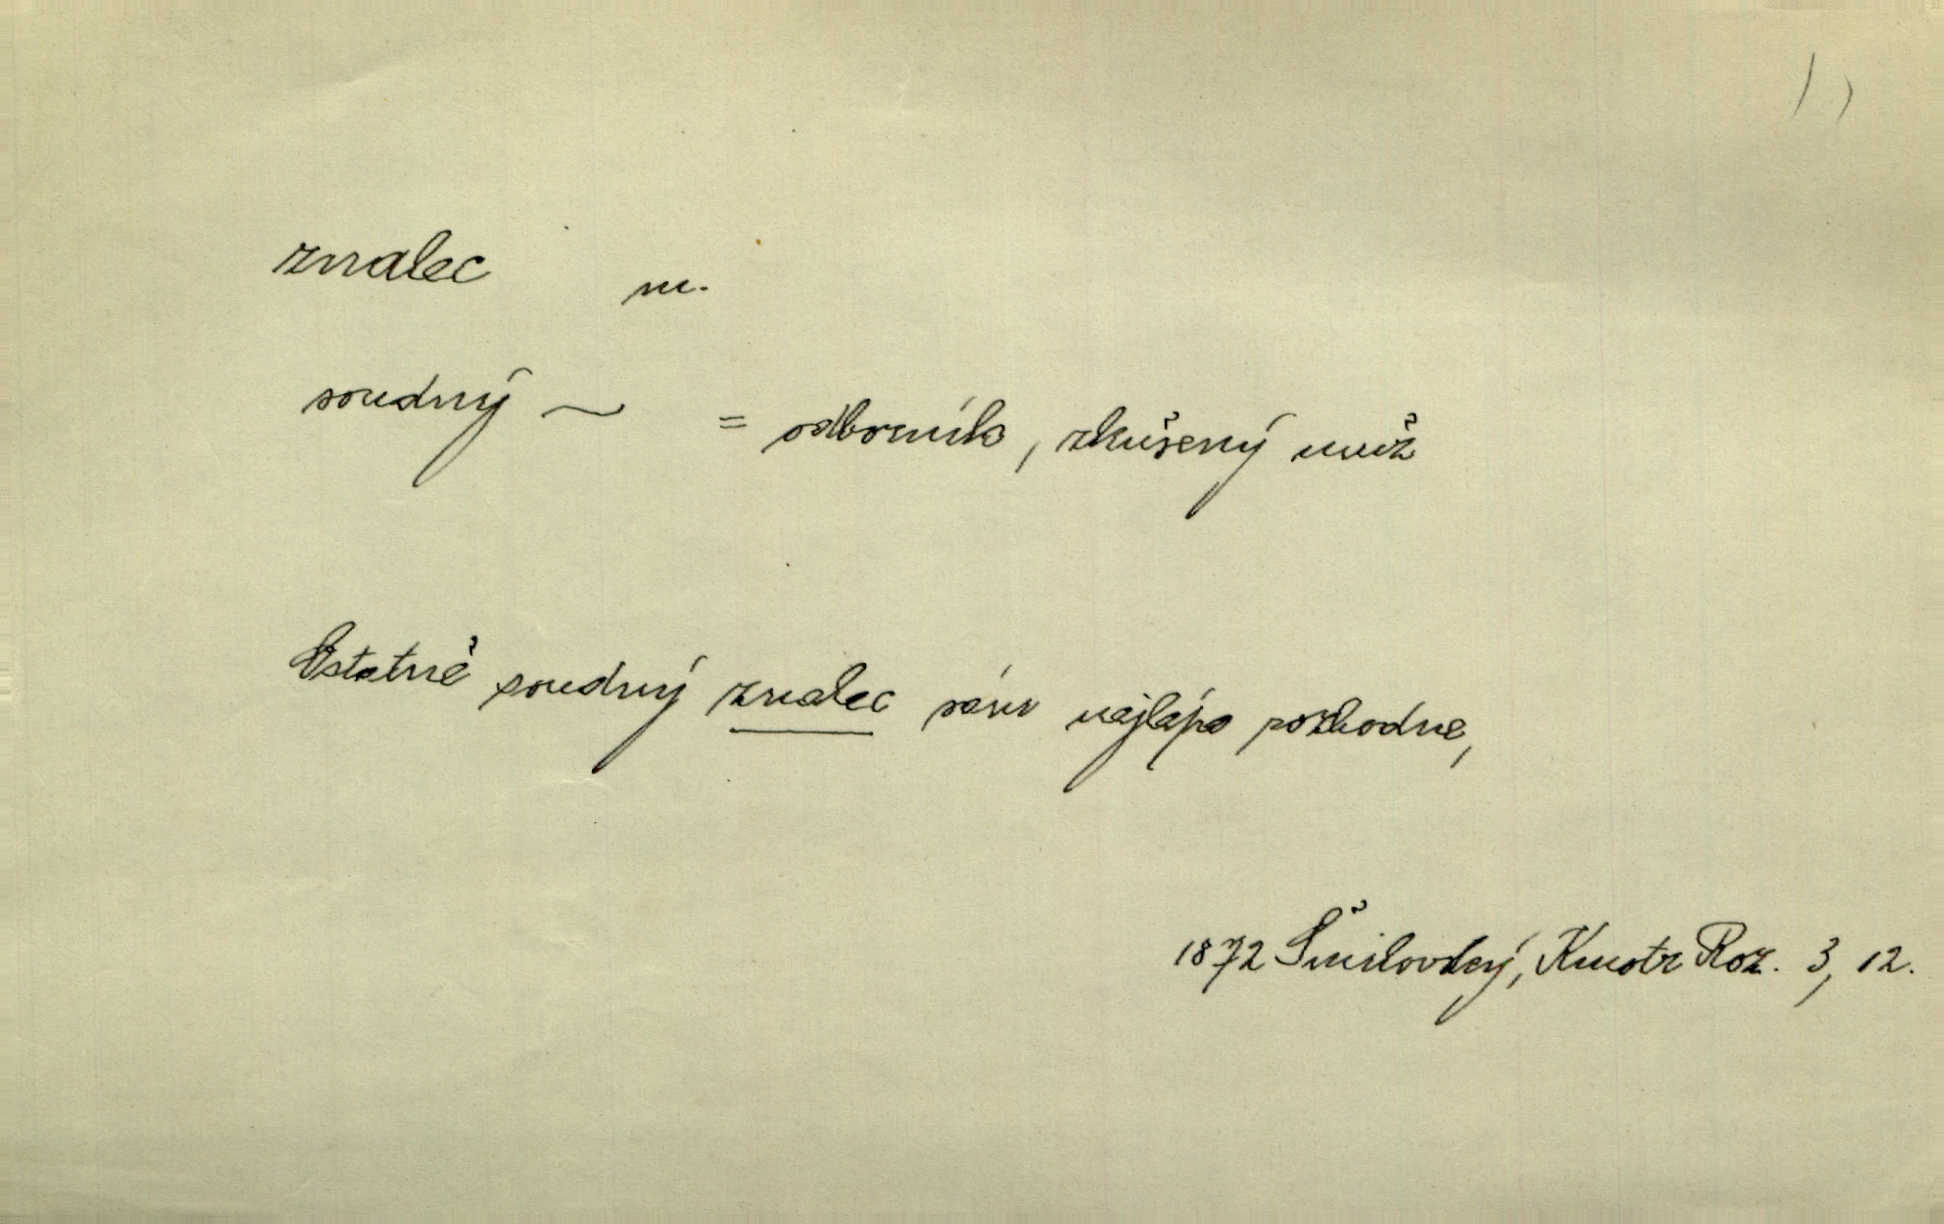 1)
znalec m.
soudný ~ = odborník, zkušený muž
Ostatně soudný znalec sám nejlépe rozhodne,
1872 Šmilovský, Kmotr Roz. 3, 12.